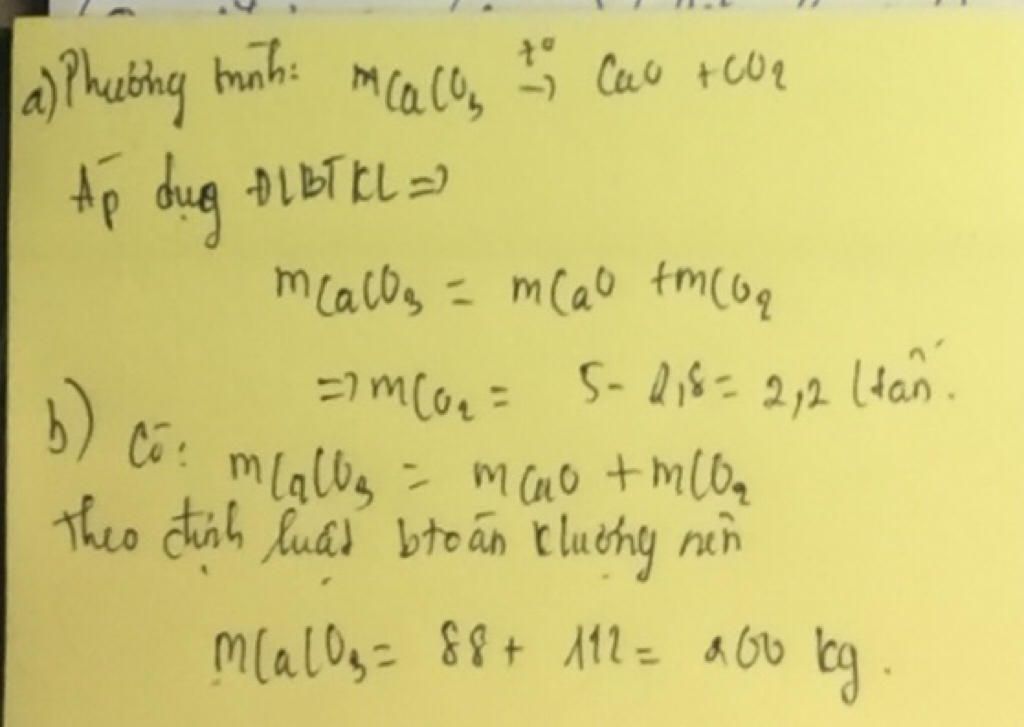 a) Phương trình: mCaCO₃ t°→ CaO + CO₂
Áp dụng ĐLBTKL =>
mCaCO₃ = mCaO + mCO₂
=> mCO₂ = 5 - 2,8 = 2,2 (tấn.
b) Có: mCaCO₃ = mCaO + mCO₂
Theo định luật btoàn kluợng nên
mCaCO₃ = 88 + 112 = 200 kg.